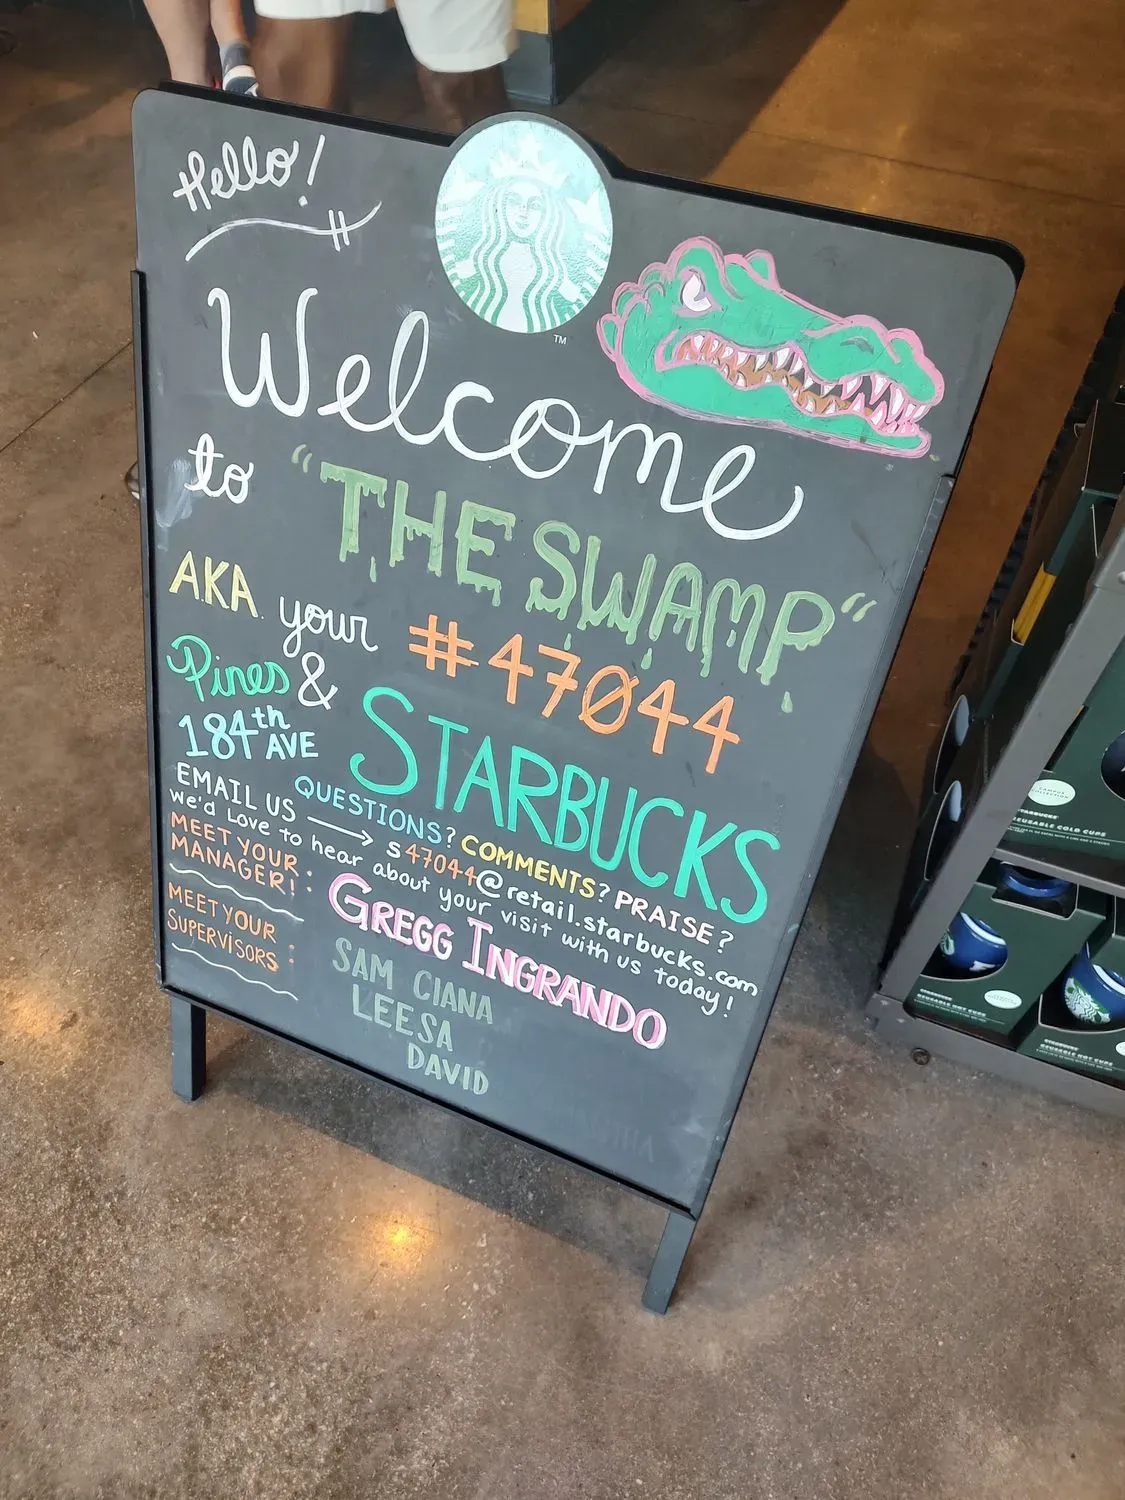 Hello!
TM
Welcome
to "THE SWAMP"
AKA your #47044
Pines & 184th AVE
STARBUCKS
QUESTIONS? COMMENTS? PRAISE?
EMAIL US → s47044@retail.starbucks.com
we'd love to hear about your visit with us today!
MEET YOUR MANAGER! : GREGG INGRANDO
MEET YOUR SUPERVISORS :
SAM CIANA
LEESA
DAVID
STARBUCKS
REUSABLE COLD CUPS
STARBUCKS
REUSABLE HOT CUPS
STARBUCKS
REUSABLE HOT CUPS